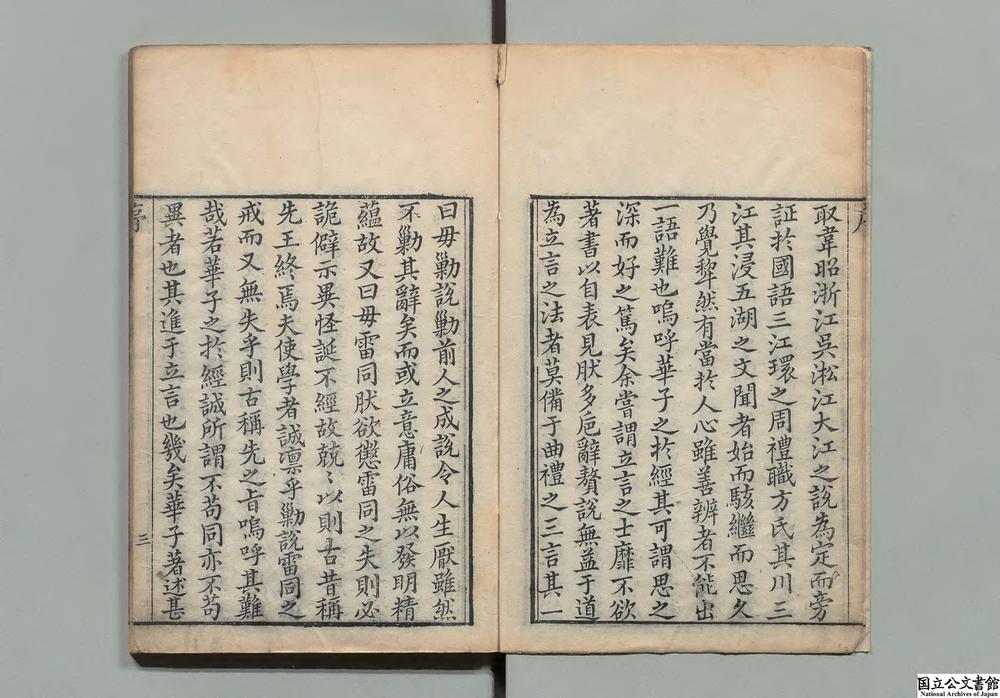 取韋昭浙江吳淞江大江之說為定而旁
証於國語三江環之周禮職方氏其川三
江其浸五湖之文聞者始而駭繼而思久
乃覺犂然有當於人心雖善辨者不能出
一語難也嗚呼華子之於經其可謂思之
深而好之篤矣余嘗謂立言之士靡不欲
著書以自表見肰多巵辭贅說無益于道
為立言之法者莫備于曲禮之三言其一
曰毋勦說勦前人之成說令人生厭雖然
不勦其辭矣而或立意庸俗無以發明精
蘊故又曰毋雷同肰欲懲雷同之失則必
詭僻示異怪誕不經故兢〻以則古昔稱
先王終焉夫使學者誠凛乎勦說雷同之
戒而又無失乎則古稱先之旨嗚呼其難
哉若華子之於經誠所謂不苟同亦不苟
異者也其進于立言也幾矣華子著述甚
序
三
国立公文書館
National Archives of Japan